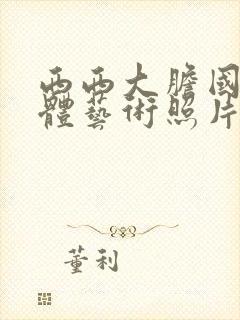 西西大膽國
體藝術照片
董利